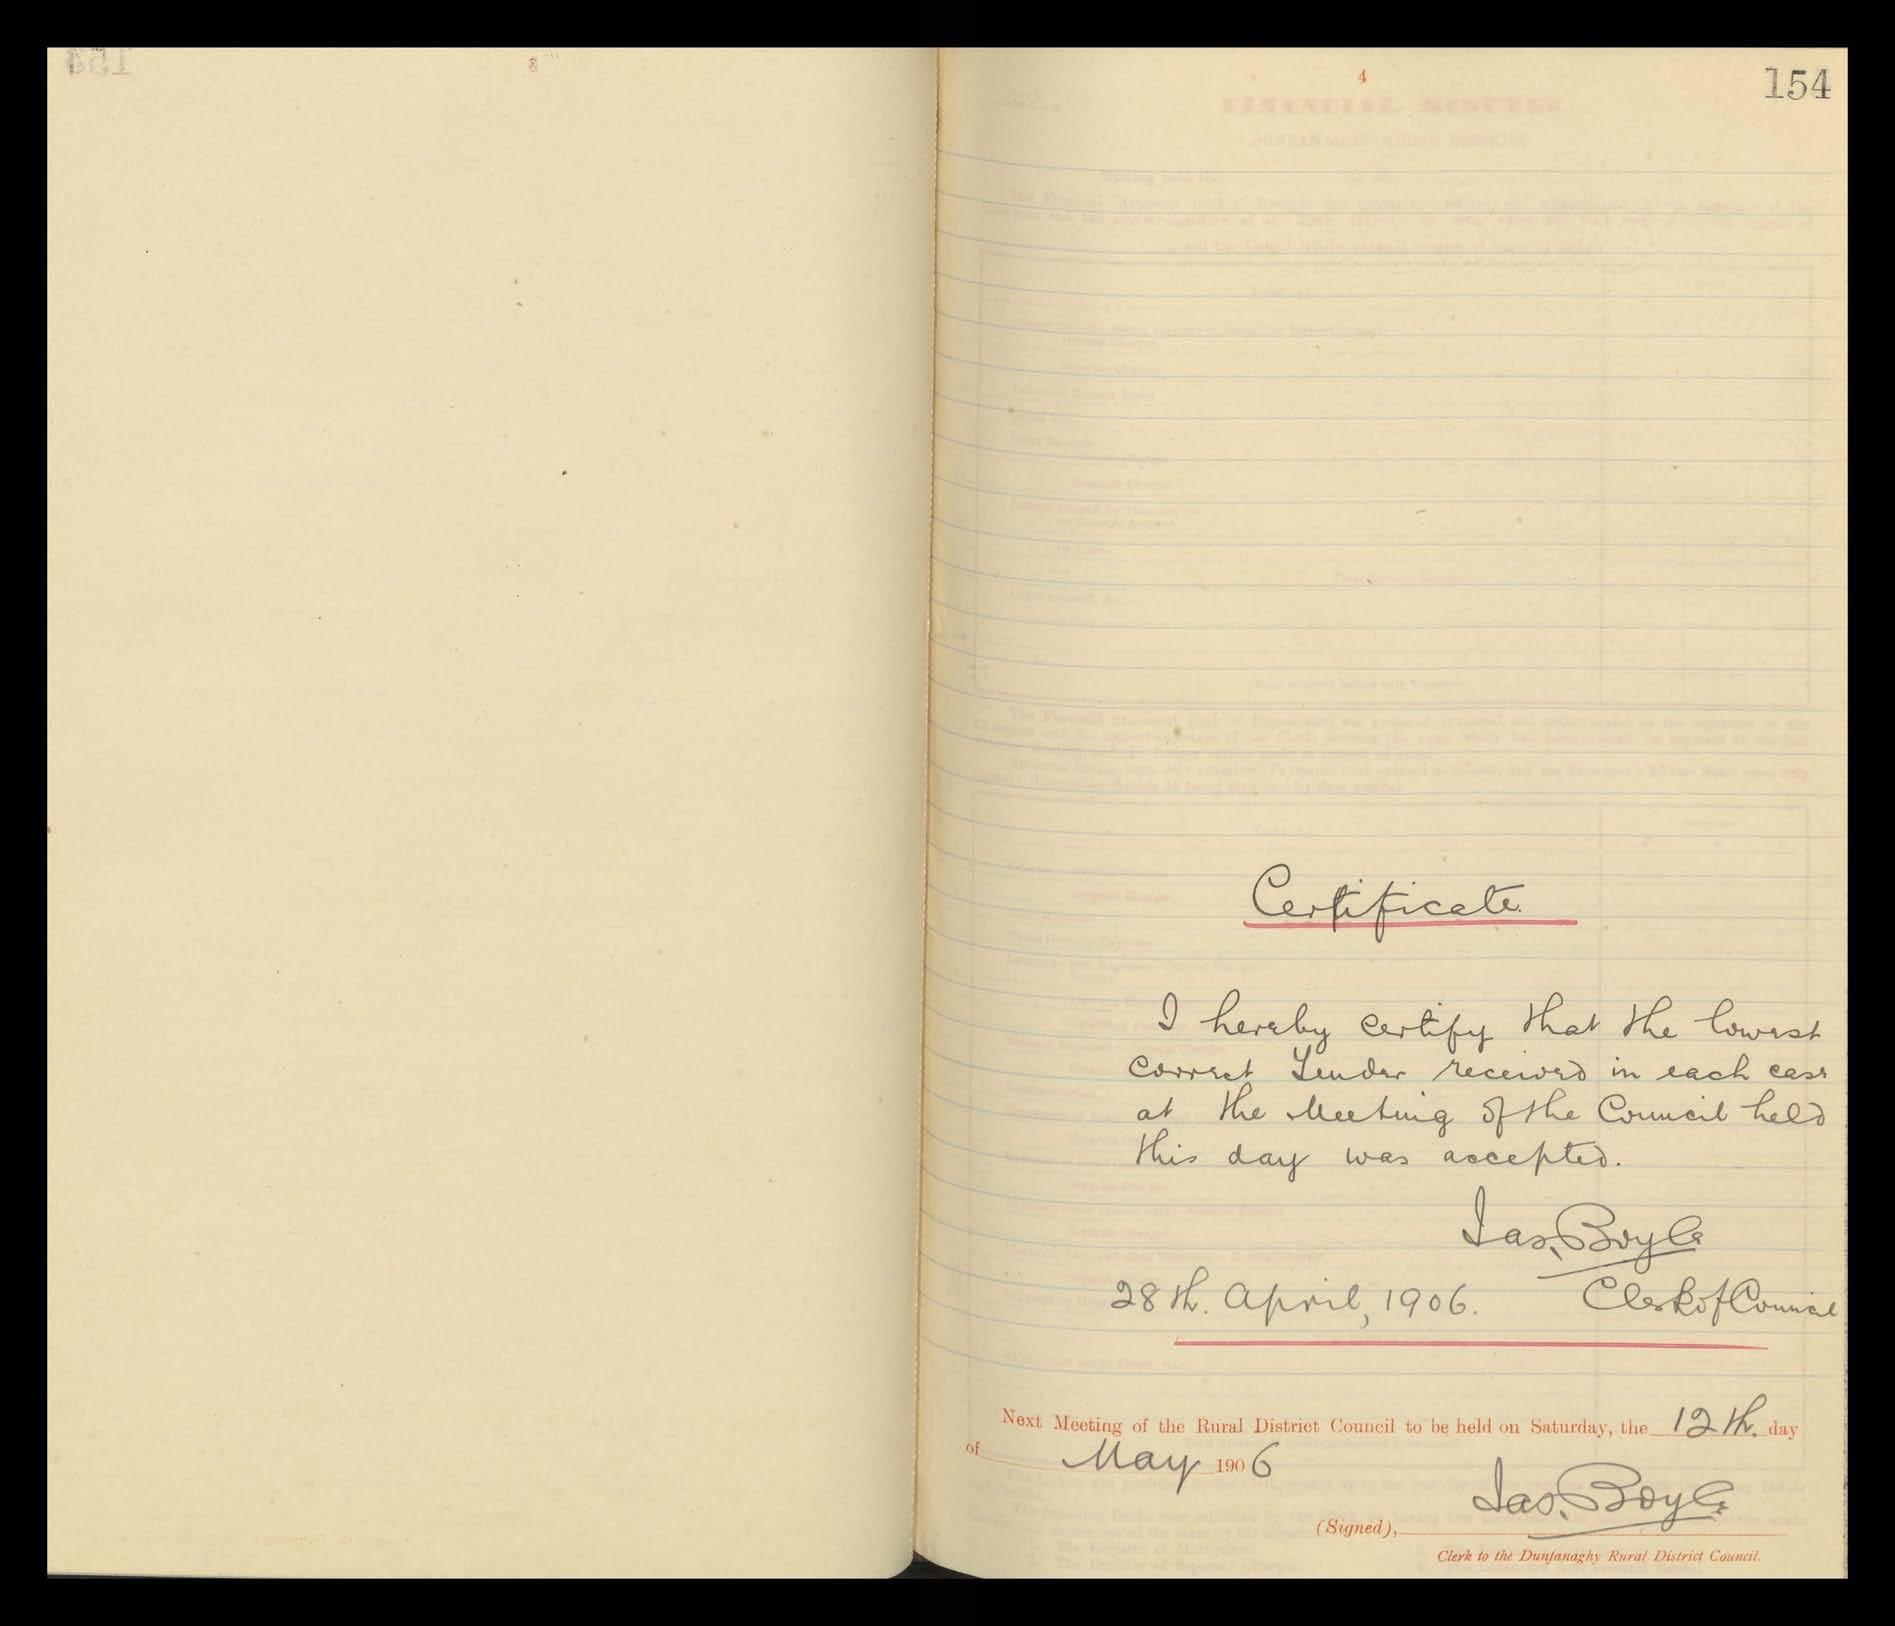 3
4
154
Certificate.
I hereby certify that the lowest
correct Tender received in each case
at the Meeting of the Council held
this day was accepted.
Jas. Boyle
28th. April, 1906. Clerk of Council
Next Meeting of the Rural District Council to be held on Saturday, the 12th. day
of May 1906
Jas. Boyle
(Signed),
Clerk to the Dunfanaghy Rural District Council.